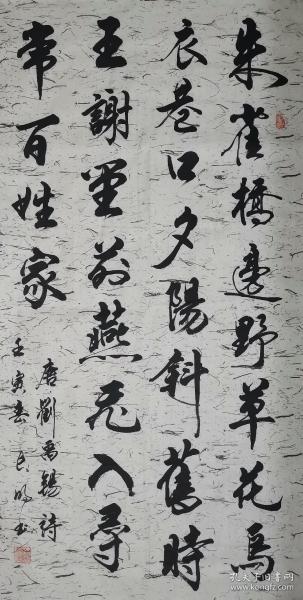 朱雀橋邊野草花烏
衣巷口夕陽斜舊時
王謝堂前燕飛入尋
常百姓家
唐劉禹錫詩
壬寅春
孔夫子旧书网